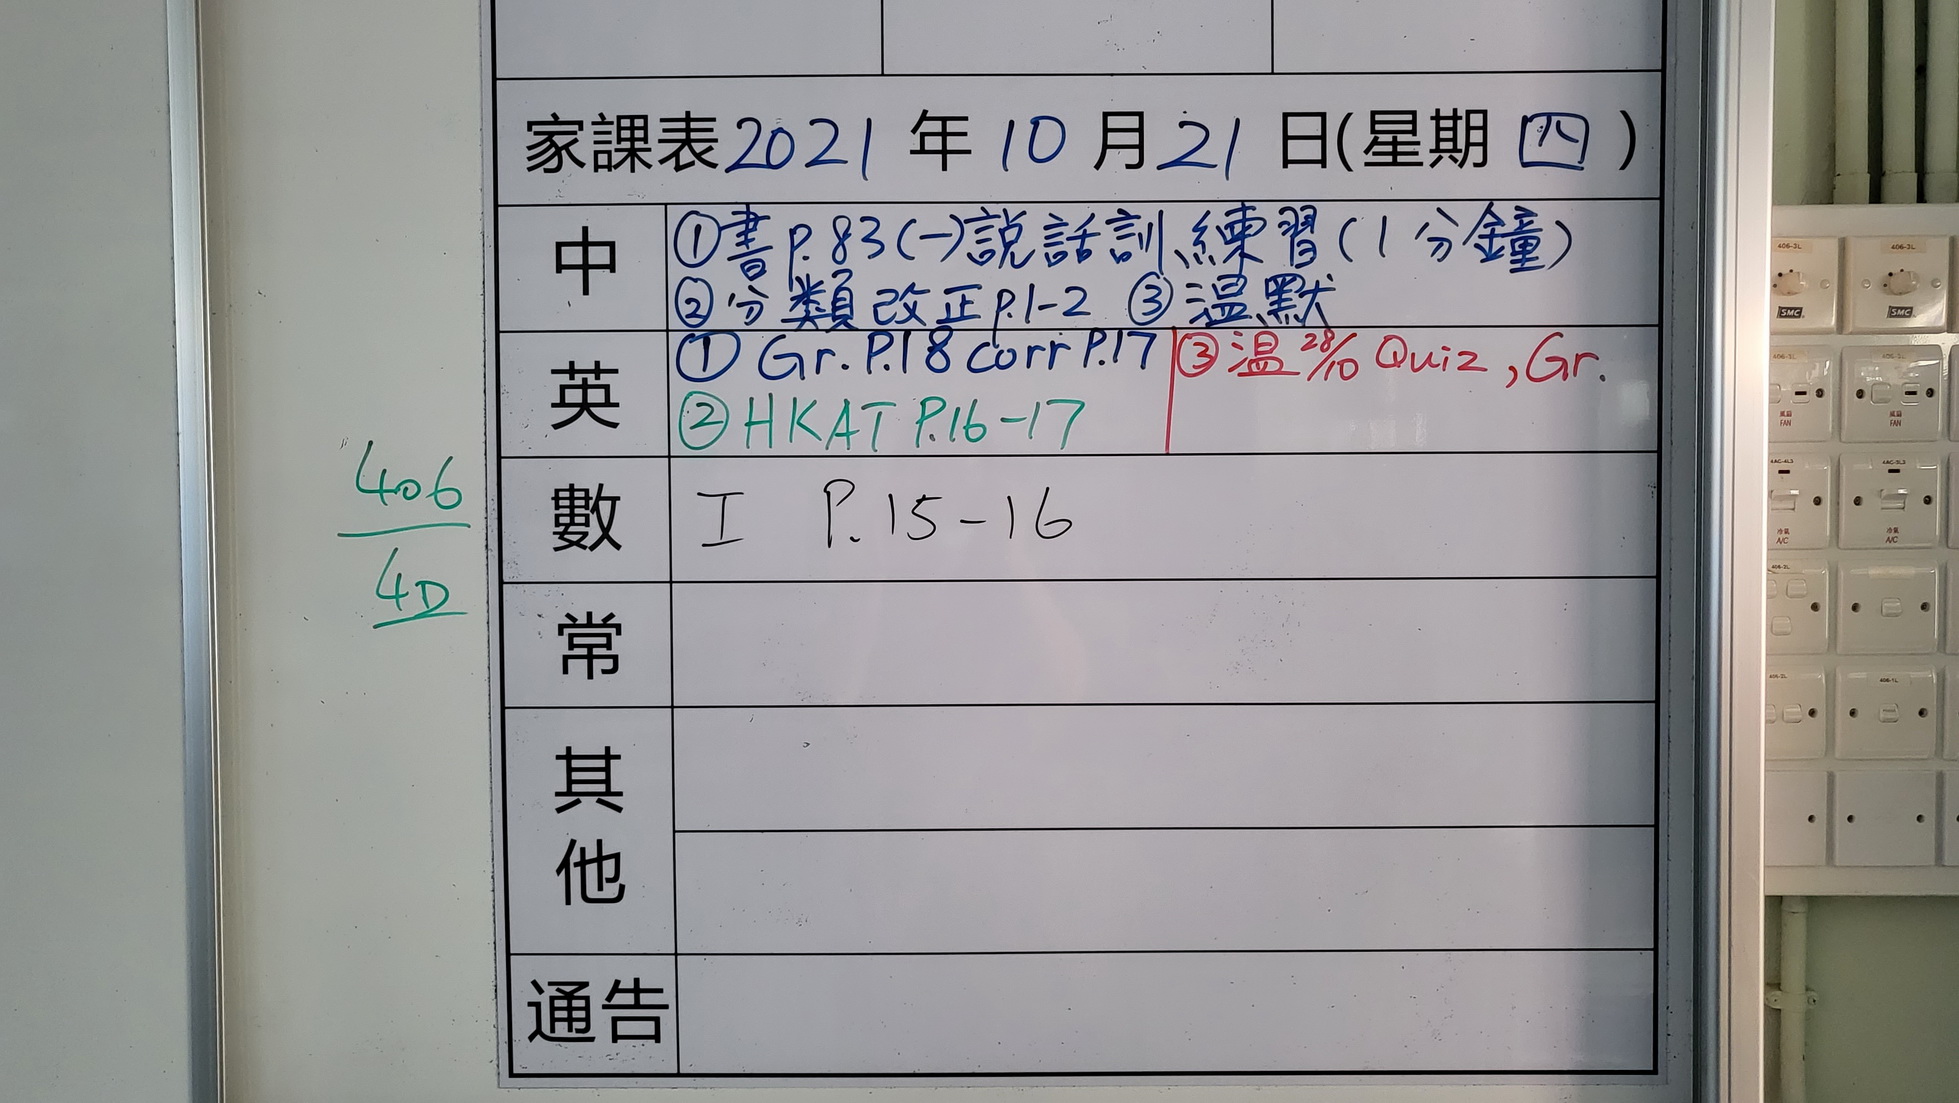 家課表2021 年 10 月 21 日(星期 四 )
中
①書P.83(一)説話訓練習(1分鐘)
②分類改正P.1-2 ③溫默
英
① Gr. P.18 corr P.17
② HKAT P.16-17
③溫28/10 Quiz, Gr.
數
I P.15-16
常
其他
通告
406
4D
406-3L
406-3L
SMC
SMC
風扇
FAN
風扇
FAN
冷氣
A/C
冷氣
A/C
406-2L
406-1L